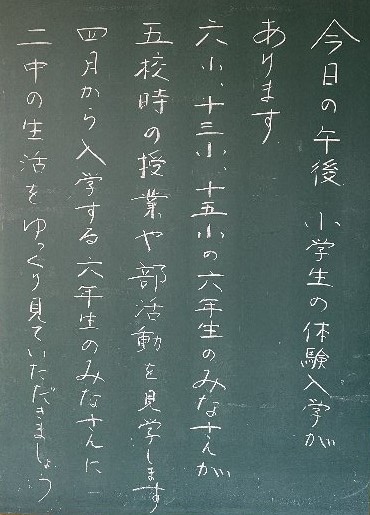 今日の午後 小学生の体験入学が
あります
六小、十三小、十五小の六年生のみなさんが
五校時の授業や部活動を見学します
四月から入学する六年生のみなさんに
二中の生活をゆっくり見ていただきましょう